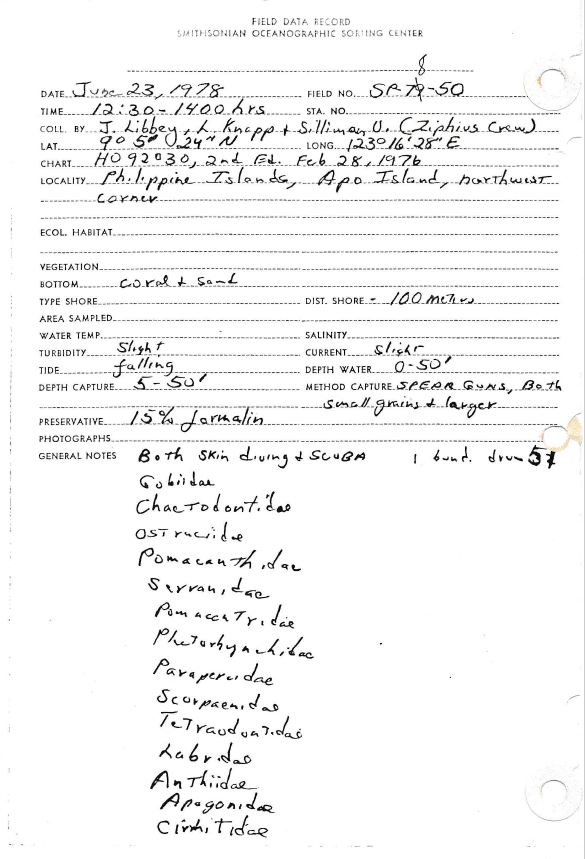 FIELD DATA RECORD
SMITHSONIAN OCEANOGRAPHIC SORTING CENTER
8
DATE June 23, 1978 FIELD NO. SP-79-50
TIME 12:30-1400 hrs STA. NO.
COLL. BY J. Libbey, L. Knapp + Silliman U. (Ziphius Crew)
LAT. 9° 5' 0.24" N LONG. 123° 16' 28" E
CHART HO 92030, 2nd Ed. Feb 28, 1976
LOCALITY Philippine Islands, Apo Island, northwest
corner
ECOL. HABITAT
VEGETATION
BOTTOM coral + sand
TYPE SHORE DIST. SHORE - 100 meters
AREA SAMPLED
WATER TEMP. SALINITY
TURBIDITY Slight CURRENT slight
TIDE falling DEPTH WATER 0-50'
DEPTH CAPTURE 5-50' METHOD CAPTURE SPEAR GUNS, Both
small grains + larger
PRESERVATIVE 15% formalin
PHOTOGRAPHS
GENERAL NOTES Both skin diving + SCUBA 1 bund. drum
Gobiidae
Chaetodontidae
Ostraciidae
Pomacanthidae
Serranidae
Pomacentridae
Parapercidae
Scorpaenidae
Tetraodontidae
Labridae
Anthiidae
Apogonidae
Cirrhitidae